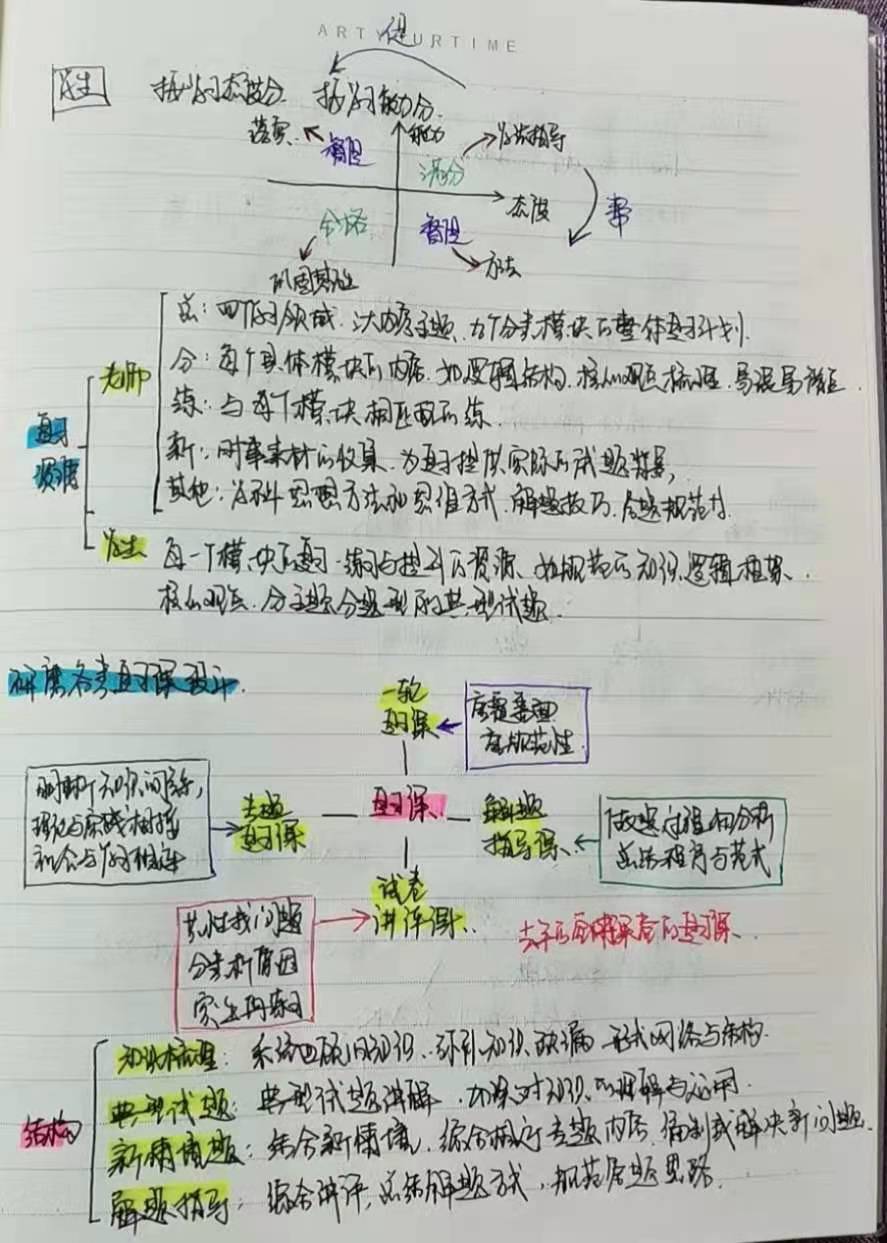 ARTYOURTIME
促
学生 按学习态度分 按学习能力分
能力
落实 督促 满分 方法指导
态度
合格 督促 帮
巩固基础 方法
复习资源
老师
总：四个学习领域、六大内容主题、九个分类模块的整体复习计划.
分：每个具体模块的内容、如逻辑结构、核心观点梳理、易混易错点
练：与每个模块相匹配的练.
新：时事素材的收集、为复习提供实际的试题背景,
其他：学科思想方法和思维方式、解题技巧、答题规范等.
学生
每一个模块的复习、练习与提升的资源、如规范的知识、逻辑框架、
核心观点、分主题分题型的典型试题
研磨各类复习课设计.
一轮复习课
应重基础 应规范性
理论与实践相结合
专题复习课
复习课
解题指导课
做题过程的分析
总结程序与范式
试卷讲评课.
共性找问题
分类析原因
学生再练习
的复习课.
结构
知识梳理：系统回顾旧知识、弥补知识缺漏、形成网络与结构.
典型试题：典型试题讲解、加深对知识的理解与运用.
新情境题：结合新情境、综合相应专题内容、编制或解决新问题.
解题指导：综合讲评,总结解题方式,规范答题思路.